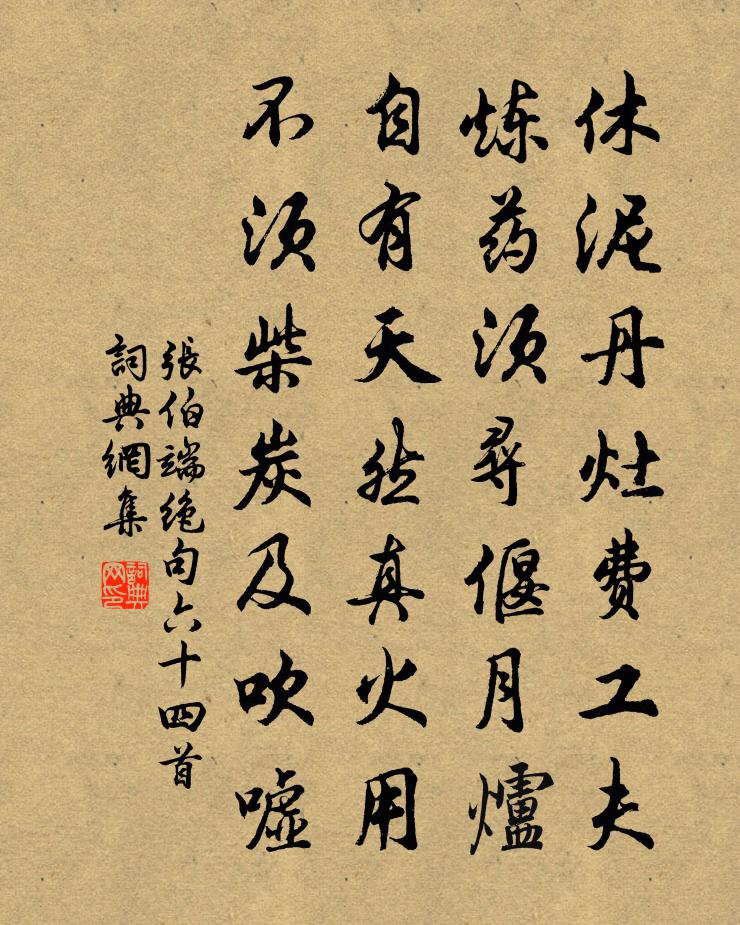 休泥丹灶费工夫
炼药须寻偃月爐
自有天然真火用
不须柴炭及吹嘘
張伯端绝句六十四首
詞典網集
詞典网印